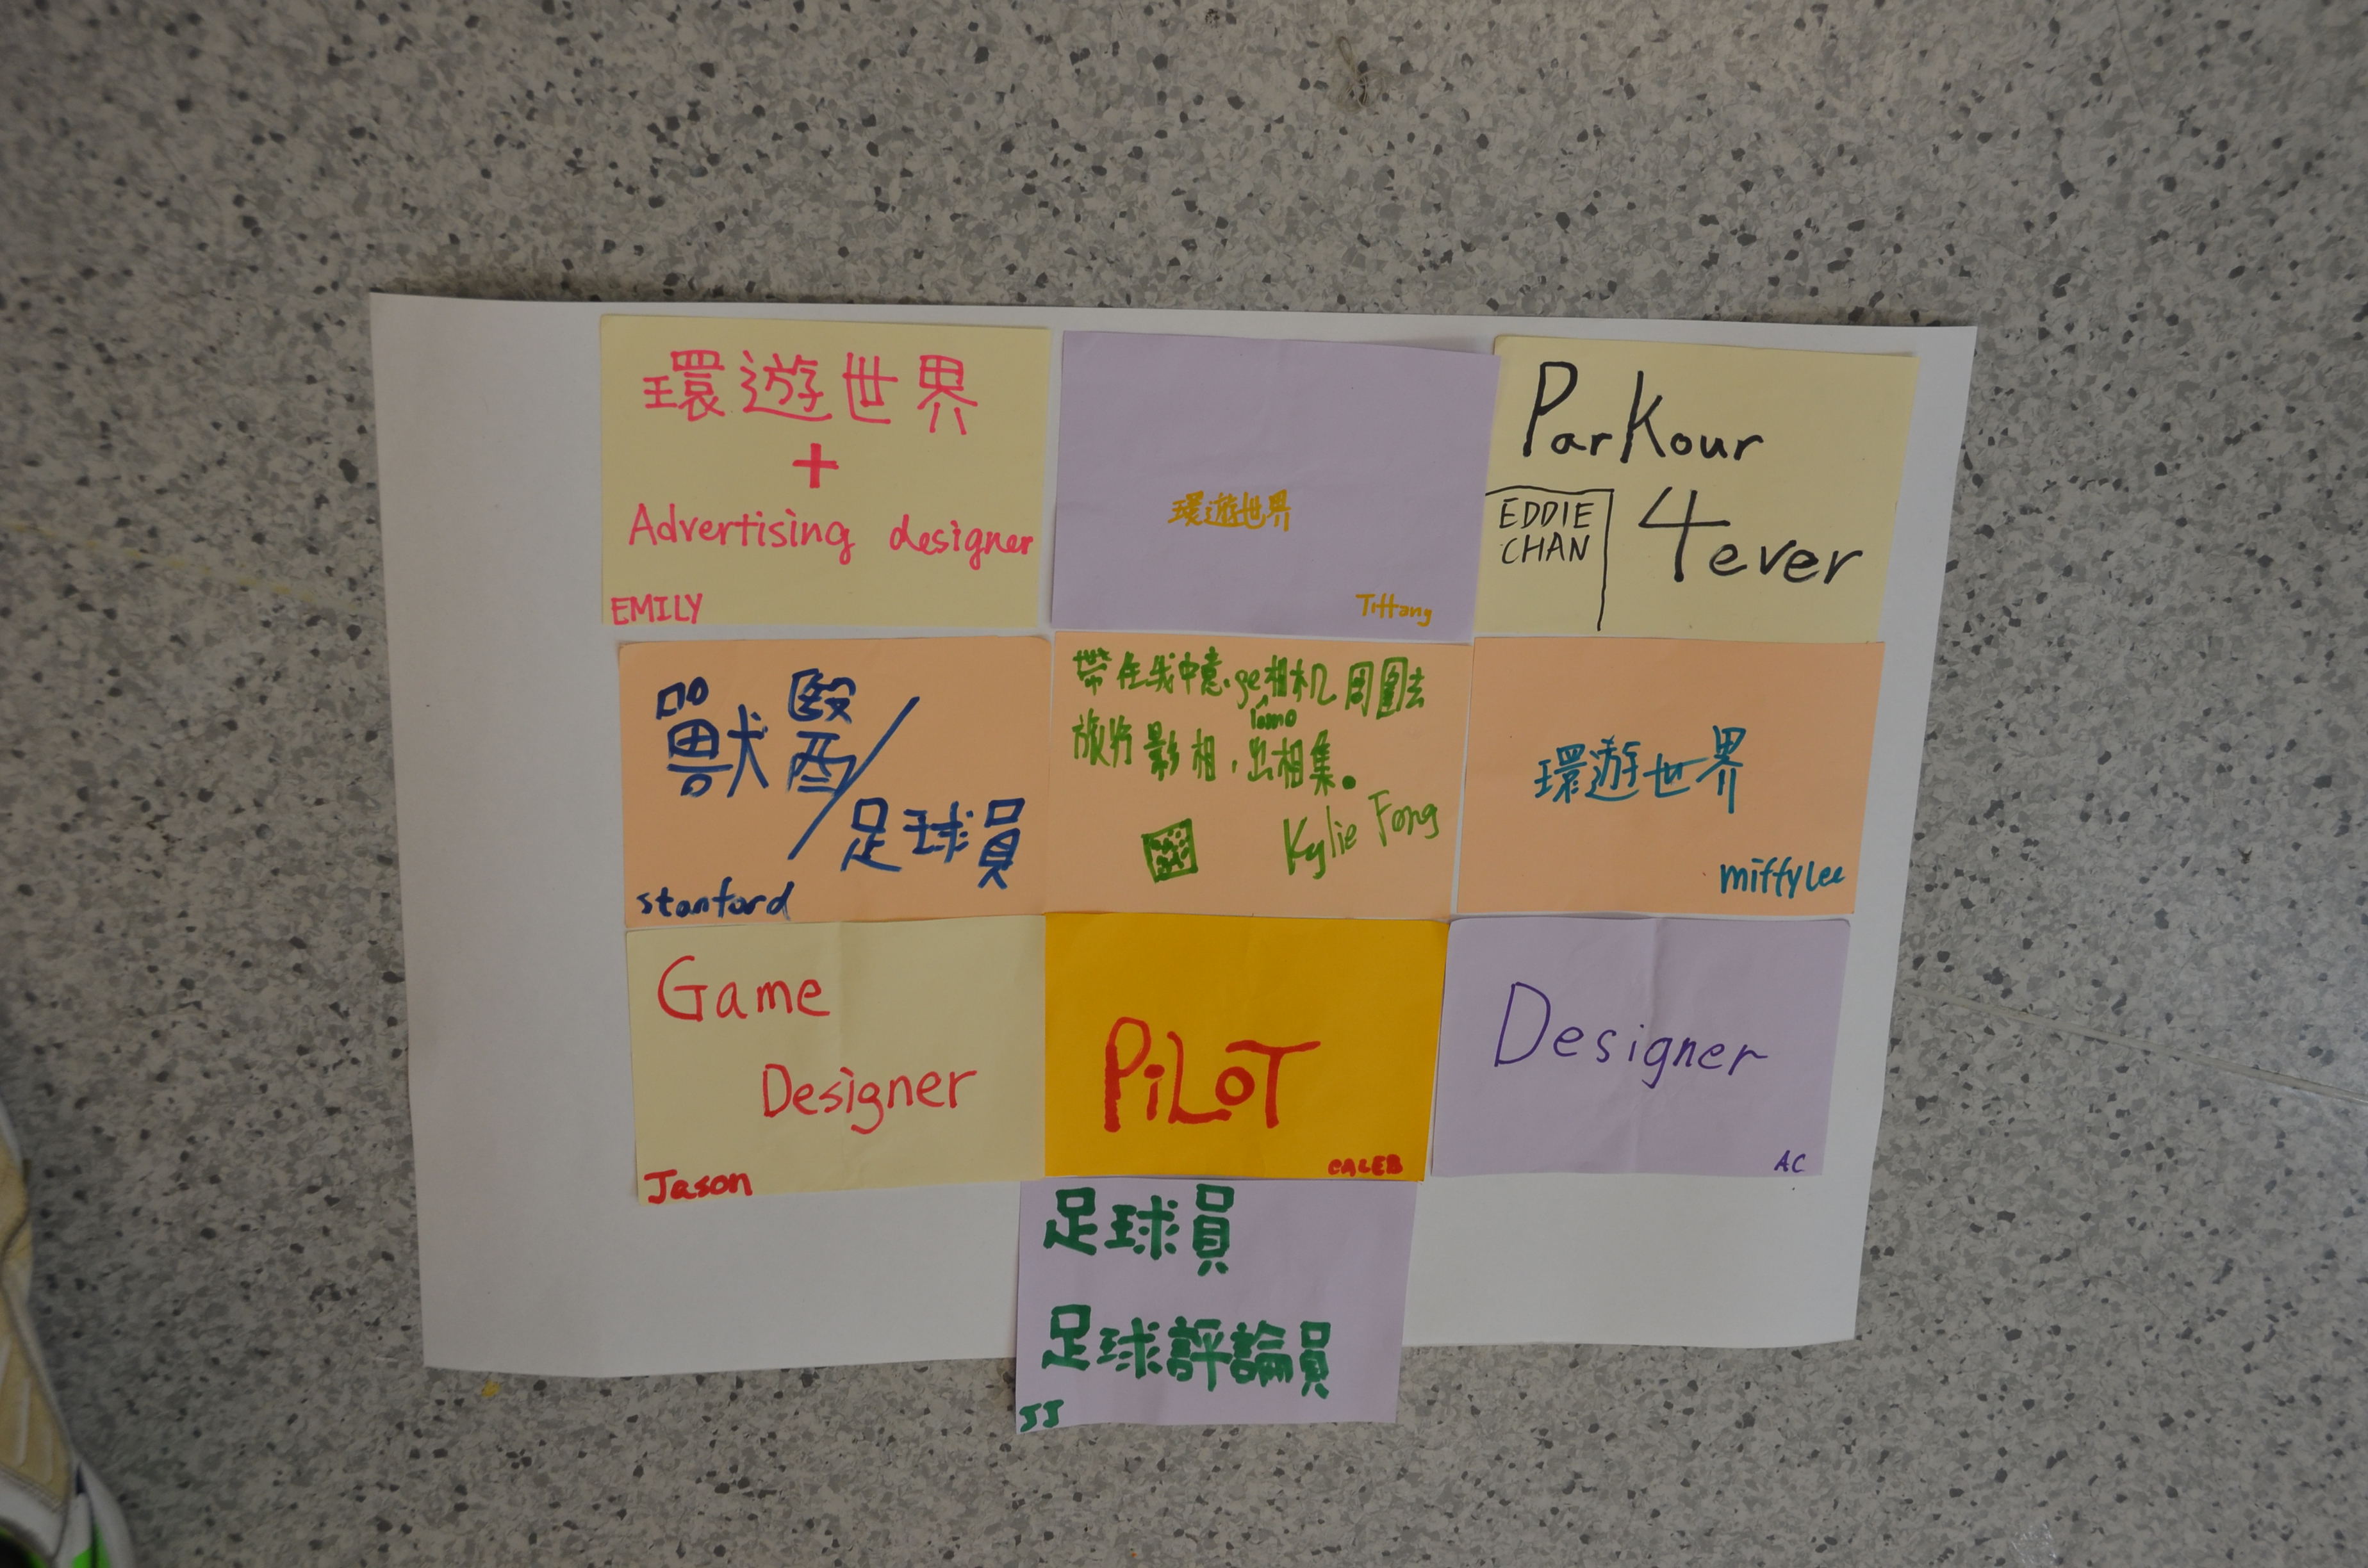 環遊世界
+
Advertising designer
EMILY
環遊世界
Tiffany
Parkour
4ever
EDDIE
CHAN
獸醫/
足球員
stanford
帶住我中意ge相机周圍去
lomo
旅行影相,出相集。
Kylie Fong
環遊世界
miffylee
Game
Designer
Jason
PiLOT
CALEB
Designer
AC
足球員
足球評論員
JJ